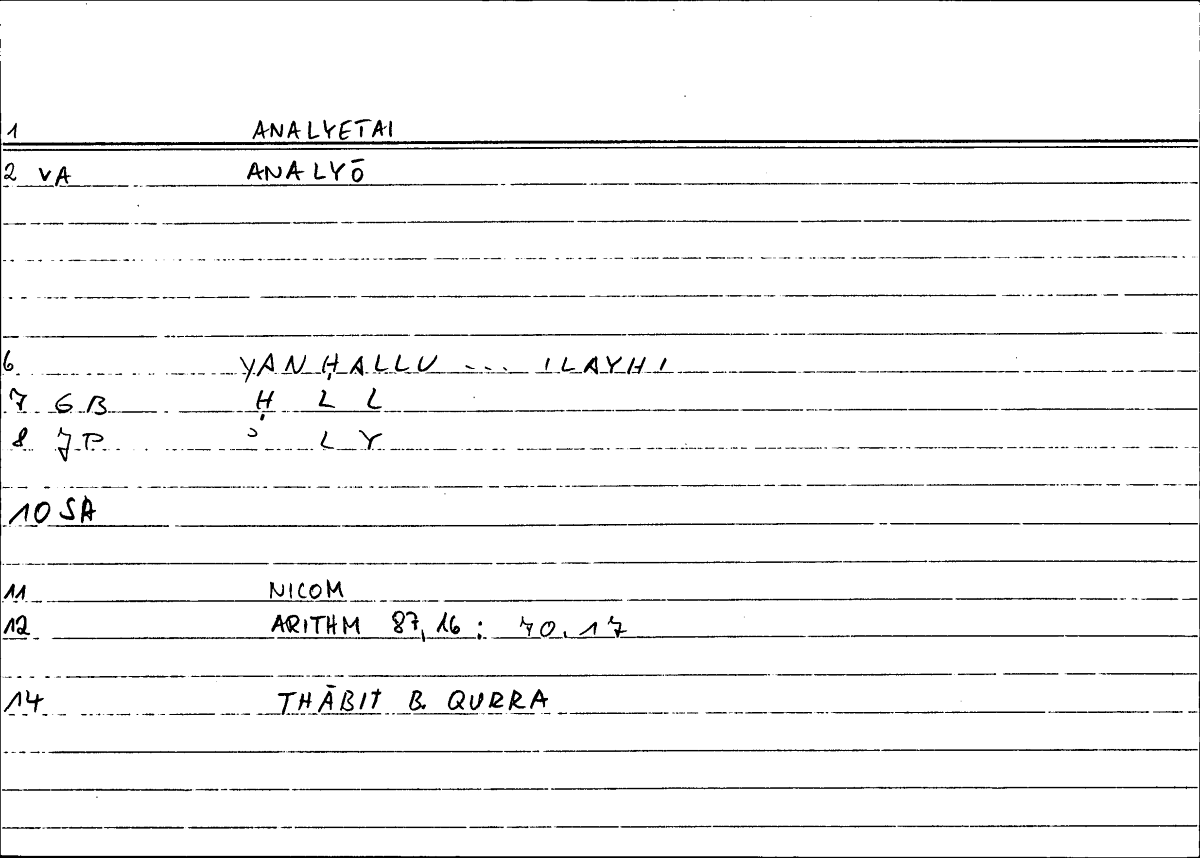 1 ANALYETAI
2 VA ANALYŌ
6 YANḤALLU ... ILAYHI
7 GB Ḥ L L
8 JP ʾ L Y
10 SA
11 NICOM
12 ARITHM 87,16: 70.17
14 THĀBIT B. QURRA